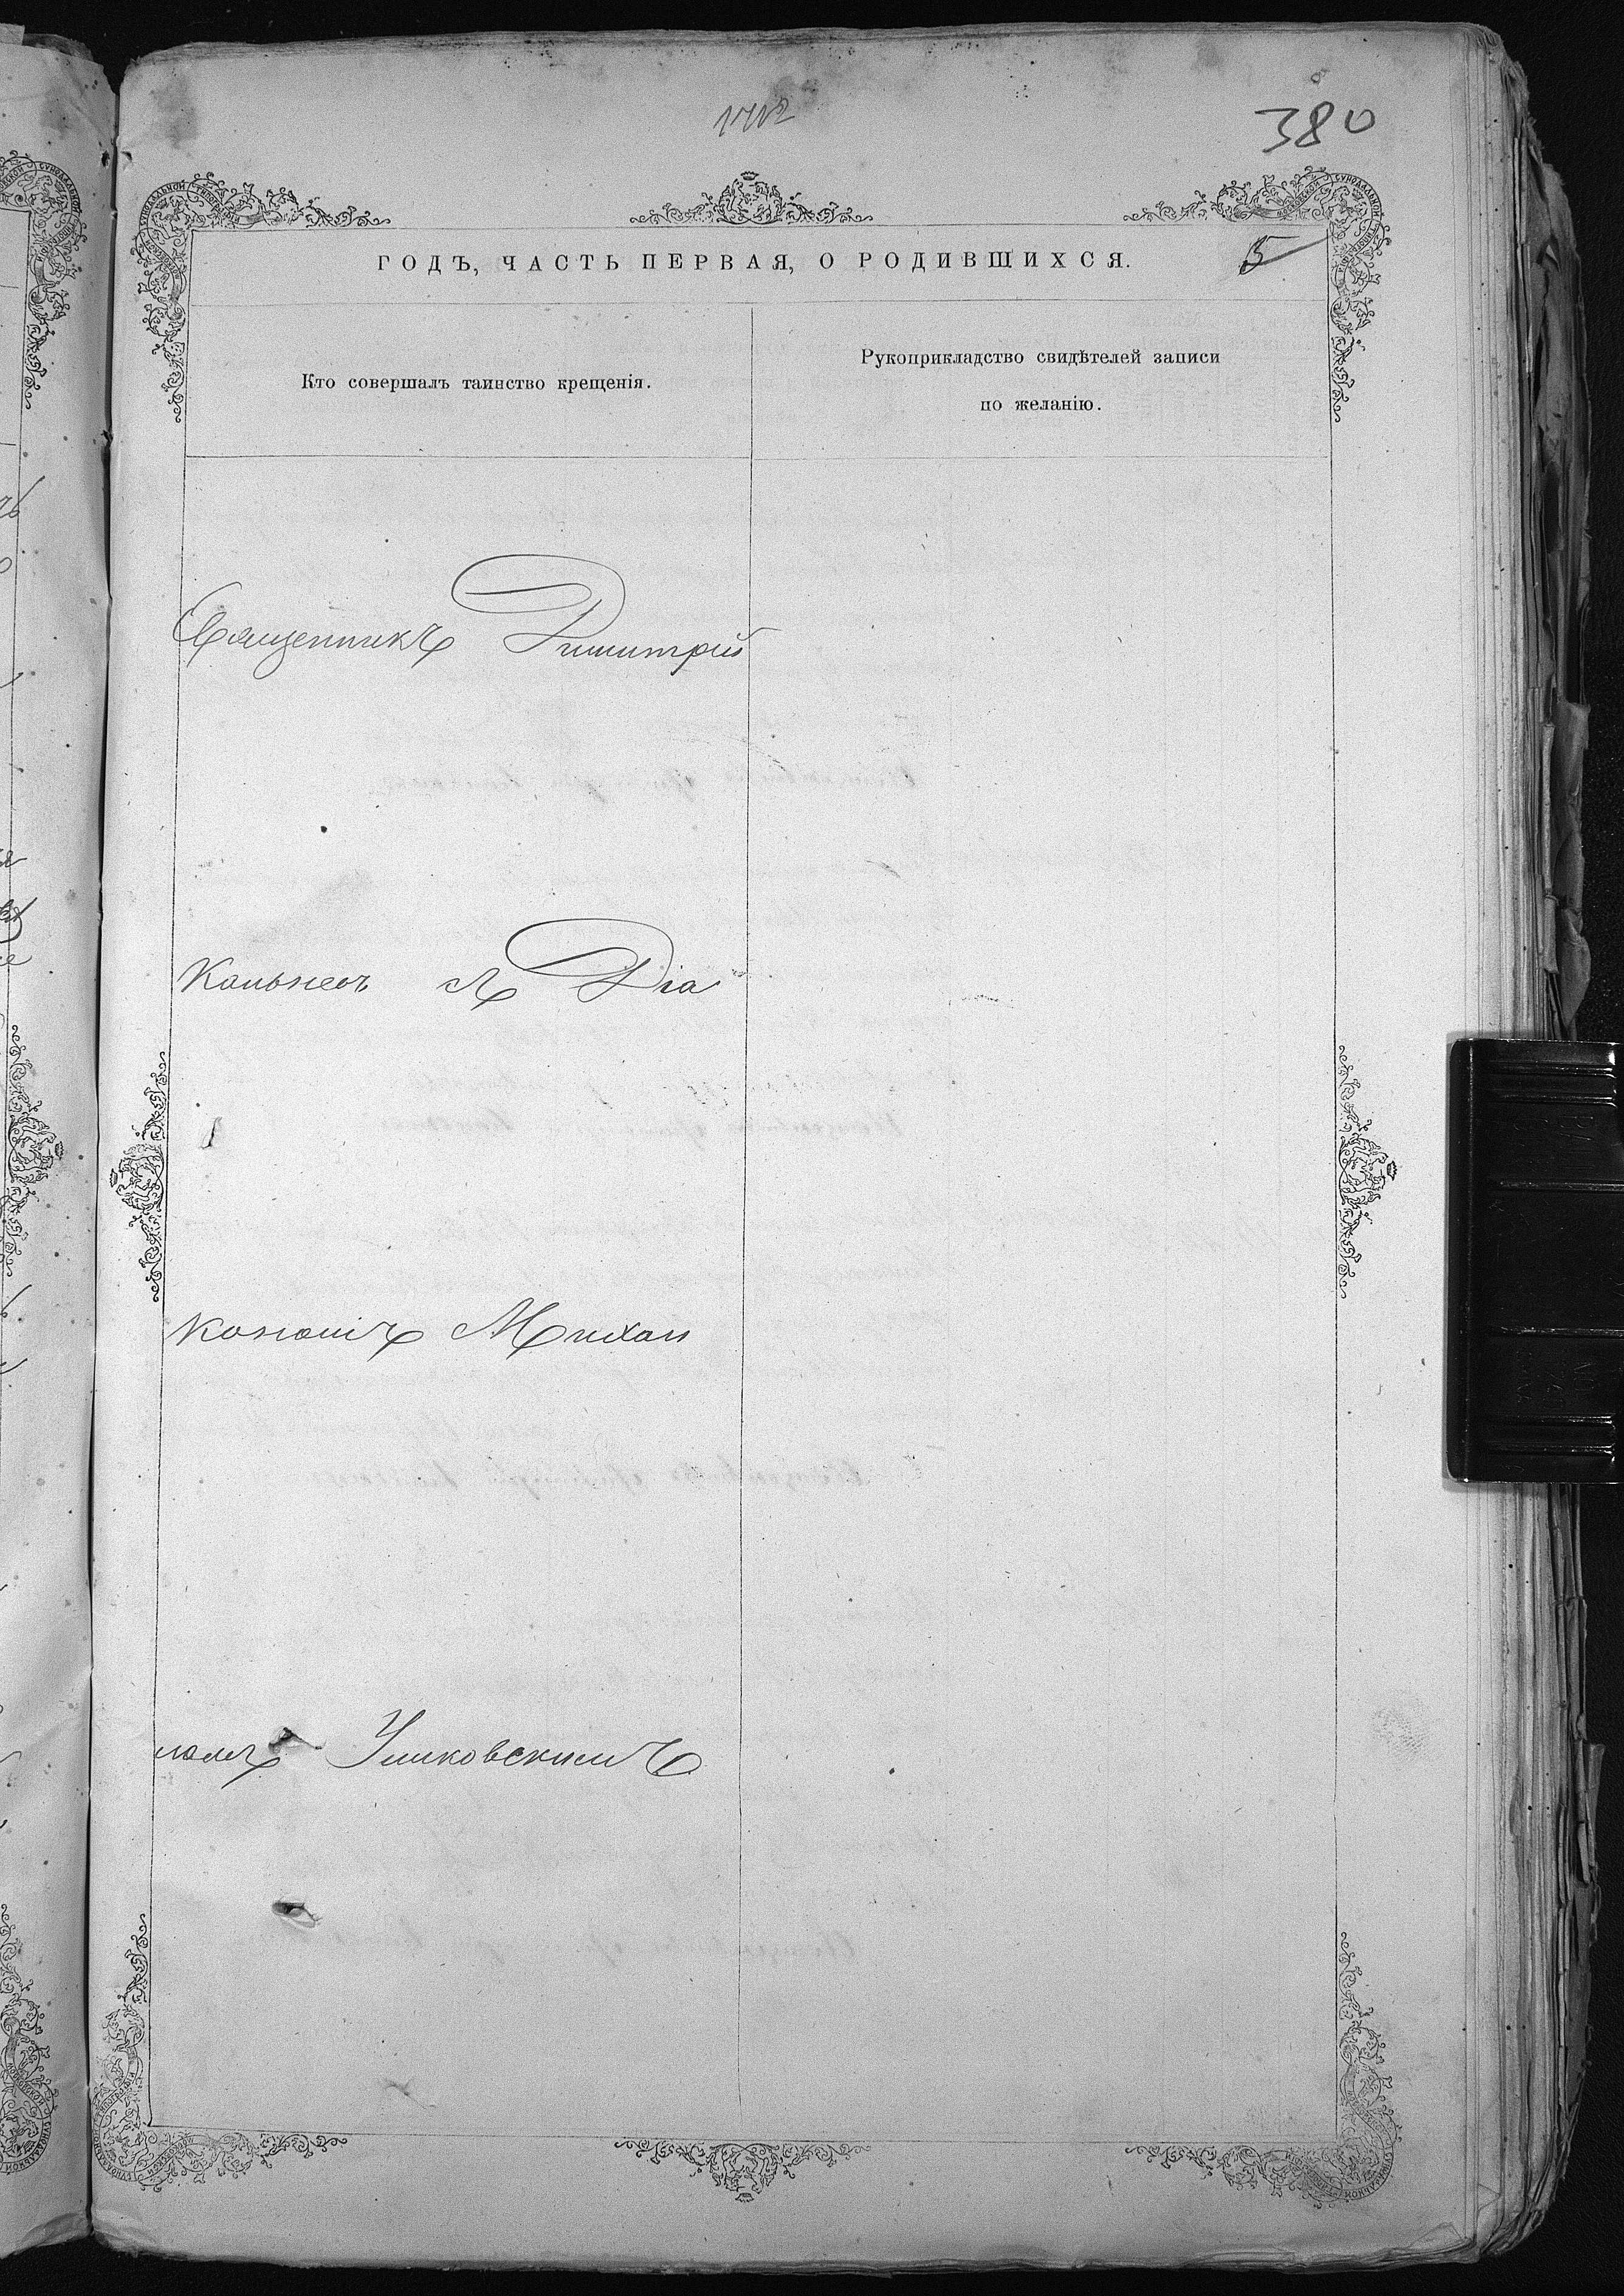 380
ГОДЪ, ЧАСТЬ ПЕРВАЯ, О РОДИВШИХСЯ. 5
Кто совершалъ таинство крещенія.
Рукоприкладство свидѣтелей записи
по желанію.
Священникъ Димитрій
Каньневъ съ Діа
кономъ Михаи
ломъ Ушковскимъ